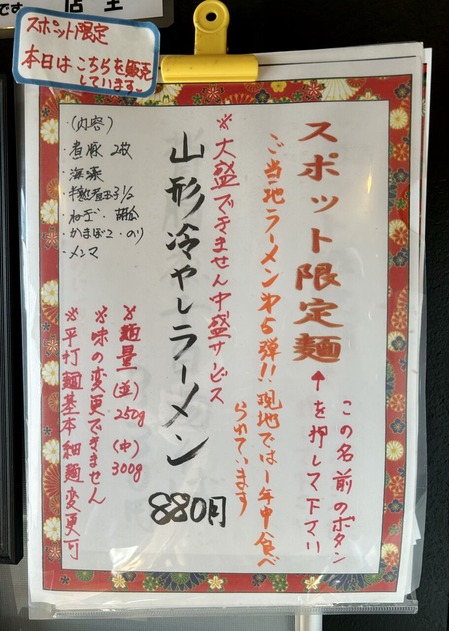 です 店主
スポット限定
本日は こちらを販売
しています
スポット限定麺
↑この名前のボタン
を押して下さい
ご当地ラーメン第5弾!!現地では1年中食べ
られています
※大盛できません中盛サービス
山形冷やしラーメン
880円
・(内容)
・煮豚 2枚
・海藻
・半熟煮玉子1/2
・ねぎ・胡瓜
・かまぼこ・のり
・メンマ
※麺量(並)250g (中)300g
※味の変更できません
※平打麺基本 細麺変更可